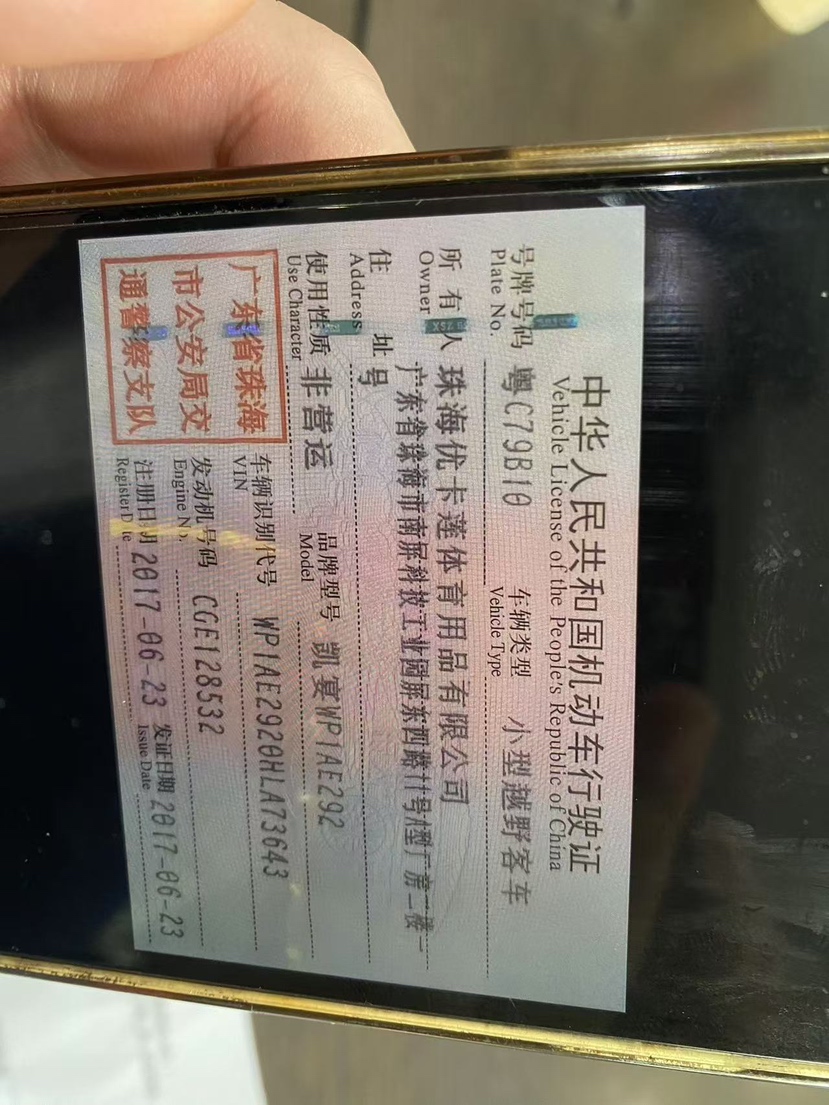 中华人民共和国机动车行驶证
Vehicle License of the People's Republic of China
号牌号码 粤C79B10 车辆类型 小型越野客车
Plate No. Vehicle Type
所有人 珠海优卡莲体育用品有限公司
Owner
住址 广东省珠海市南屏科技工业园屏东四路11号 厂房二楼一
号
Address
使用性质 非营运 品牌型号 凯宴WP1AE292
Use Character Model
广东省珠海
市公安局交
通警察支队
车辆识别代号 WP1AE2920HLA73643
VIN
发动机号码 CGE128532
Engine No.
注册日期 2017-06-23 发证日期 2017-06-23
Register Date Issue Date